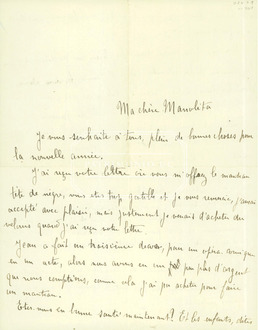 Ma chère Manolita
Je vous souhaite à tous, plein de bonnes choses pour
la nouvelle année.
J'ai reçu votre lettre où vous m'offrez le manteau
tête de nègre, vous êtes trop gentille et je vous remercie, j'aurai
accepté avec plaisir, mais justement je venais d'acheter du
velours quand j'ai reçu votre lettre.
Jean a fait un troisième devoir, pour un opéra comique
en un acte, alors nous avons eu un peu plus d'argent
que nous comptions, comme cela j'ai pu acheter pour faire
un manteau.
Etes vous en bonne santé maintenant? Et les enfants, dites